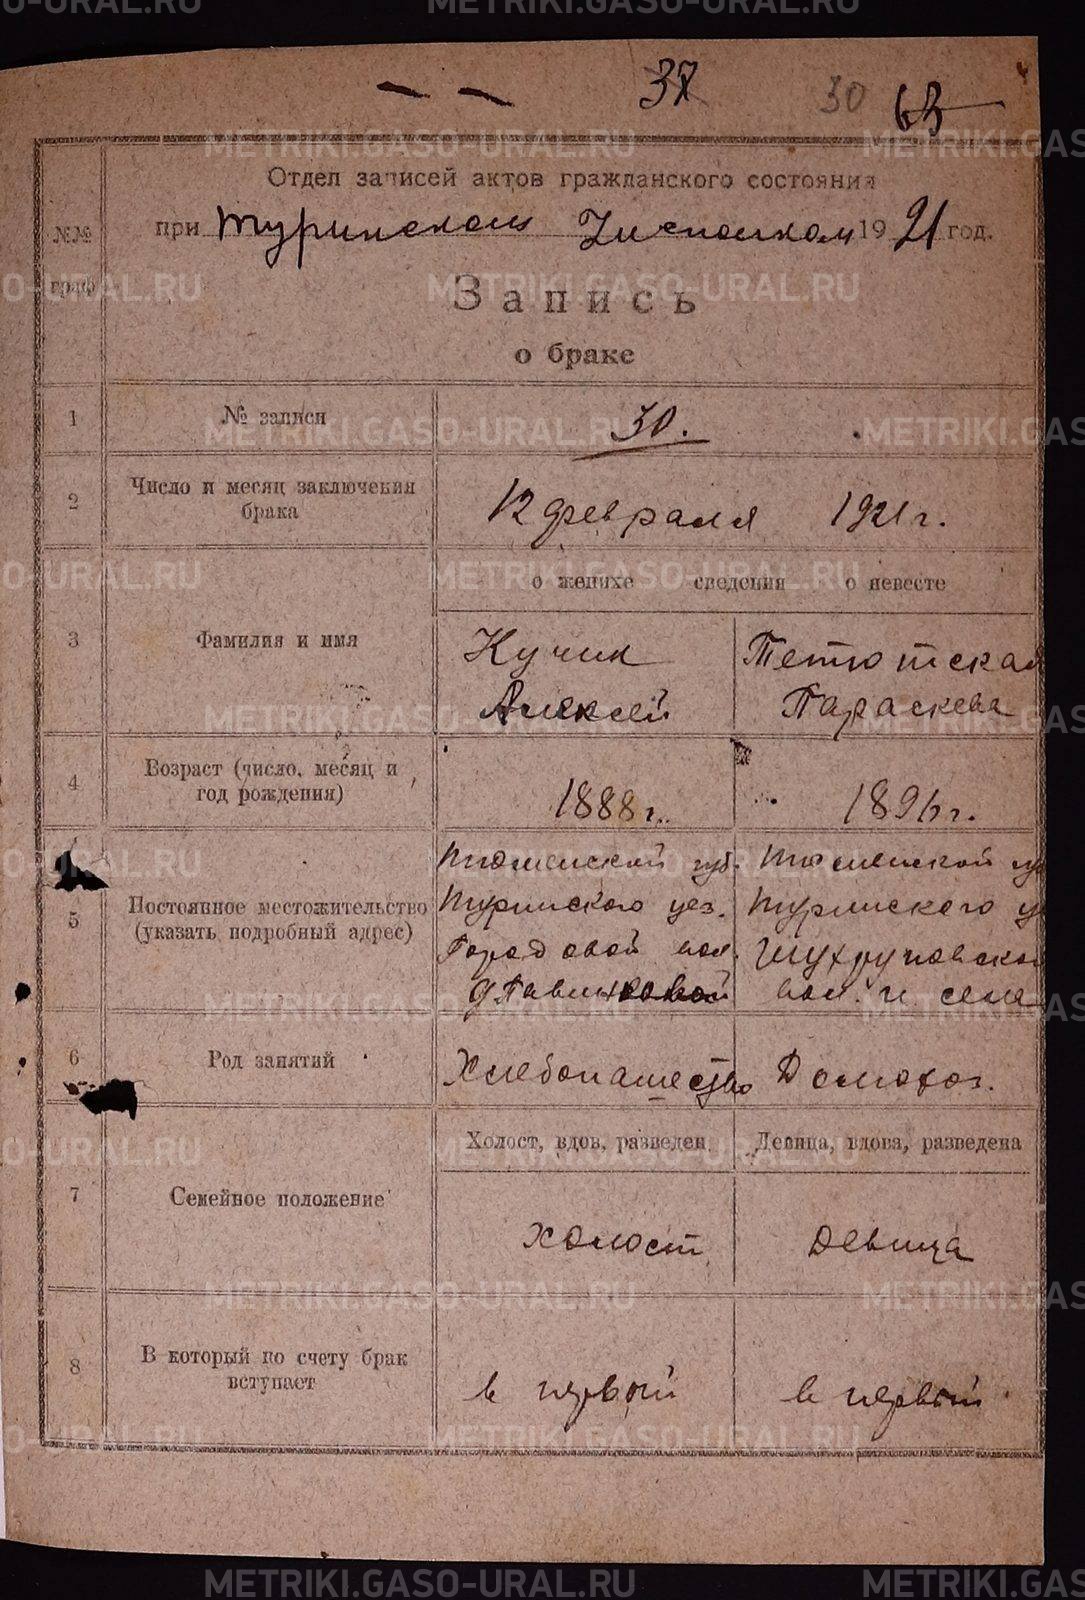 37 30 63
Отдел записей актов гражданского состояния
№№ при Туринском Исполком 1921 год.
граф
Запись
о браке
1 № записи 30.
2 Число и месяц заключения
брака 12 февраля 1921 г.
о женихе сведения о невесте
3 Фамилия и имя Кучик Тетютская
Алексей Параскева
4 Возраст (число, месяц и
год рождения) 1888 г. 1896 г.
Тюменской губ. Тюменской гу
5 Постоянное местожительство Туринского уез. Туринского у
(указать подробный адрес) Городовой вол. Шухруповской
вол. и селе
6 Род занятий Хлебопашество Домохоз.
Холост, вдов, разведен Девица, вдова, разведена
7 Семейное положение
холост девица
8 В который по счету брак
вступает в первый в первый
METRIKI.GASO-URAL.RU